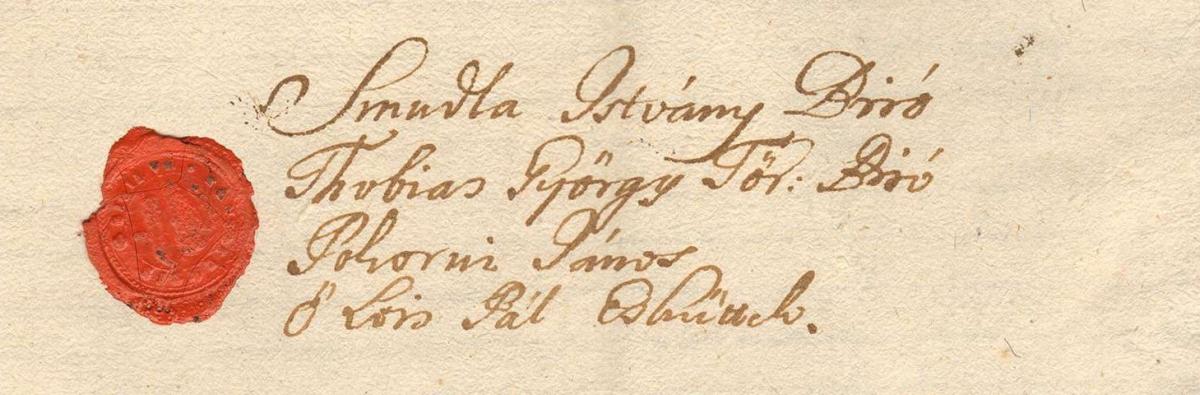 Smudla Istvány Biró
Thobias György Tör: Biró
Pohorni János
Ö Lois Pál Eshüttek.